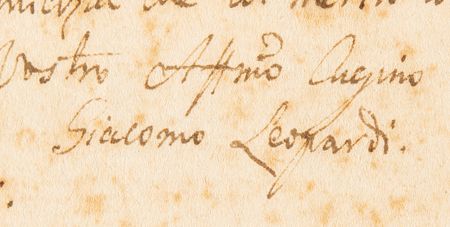 Vostro Affmo Cugino
Giacomo Leopardi.